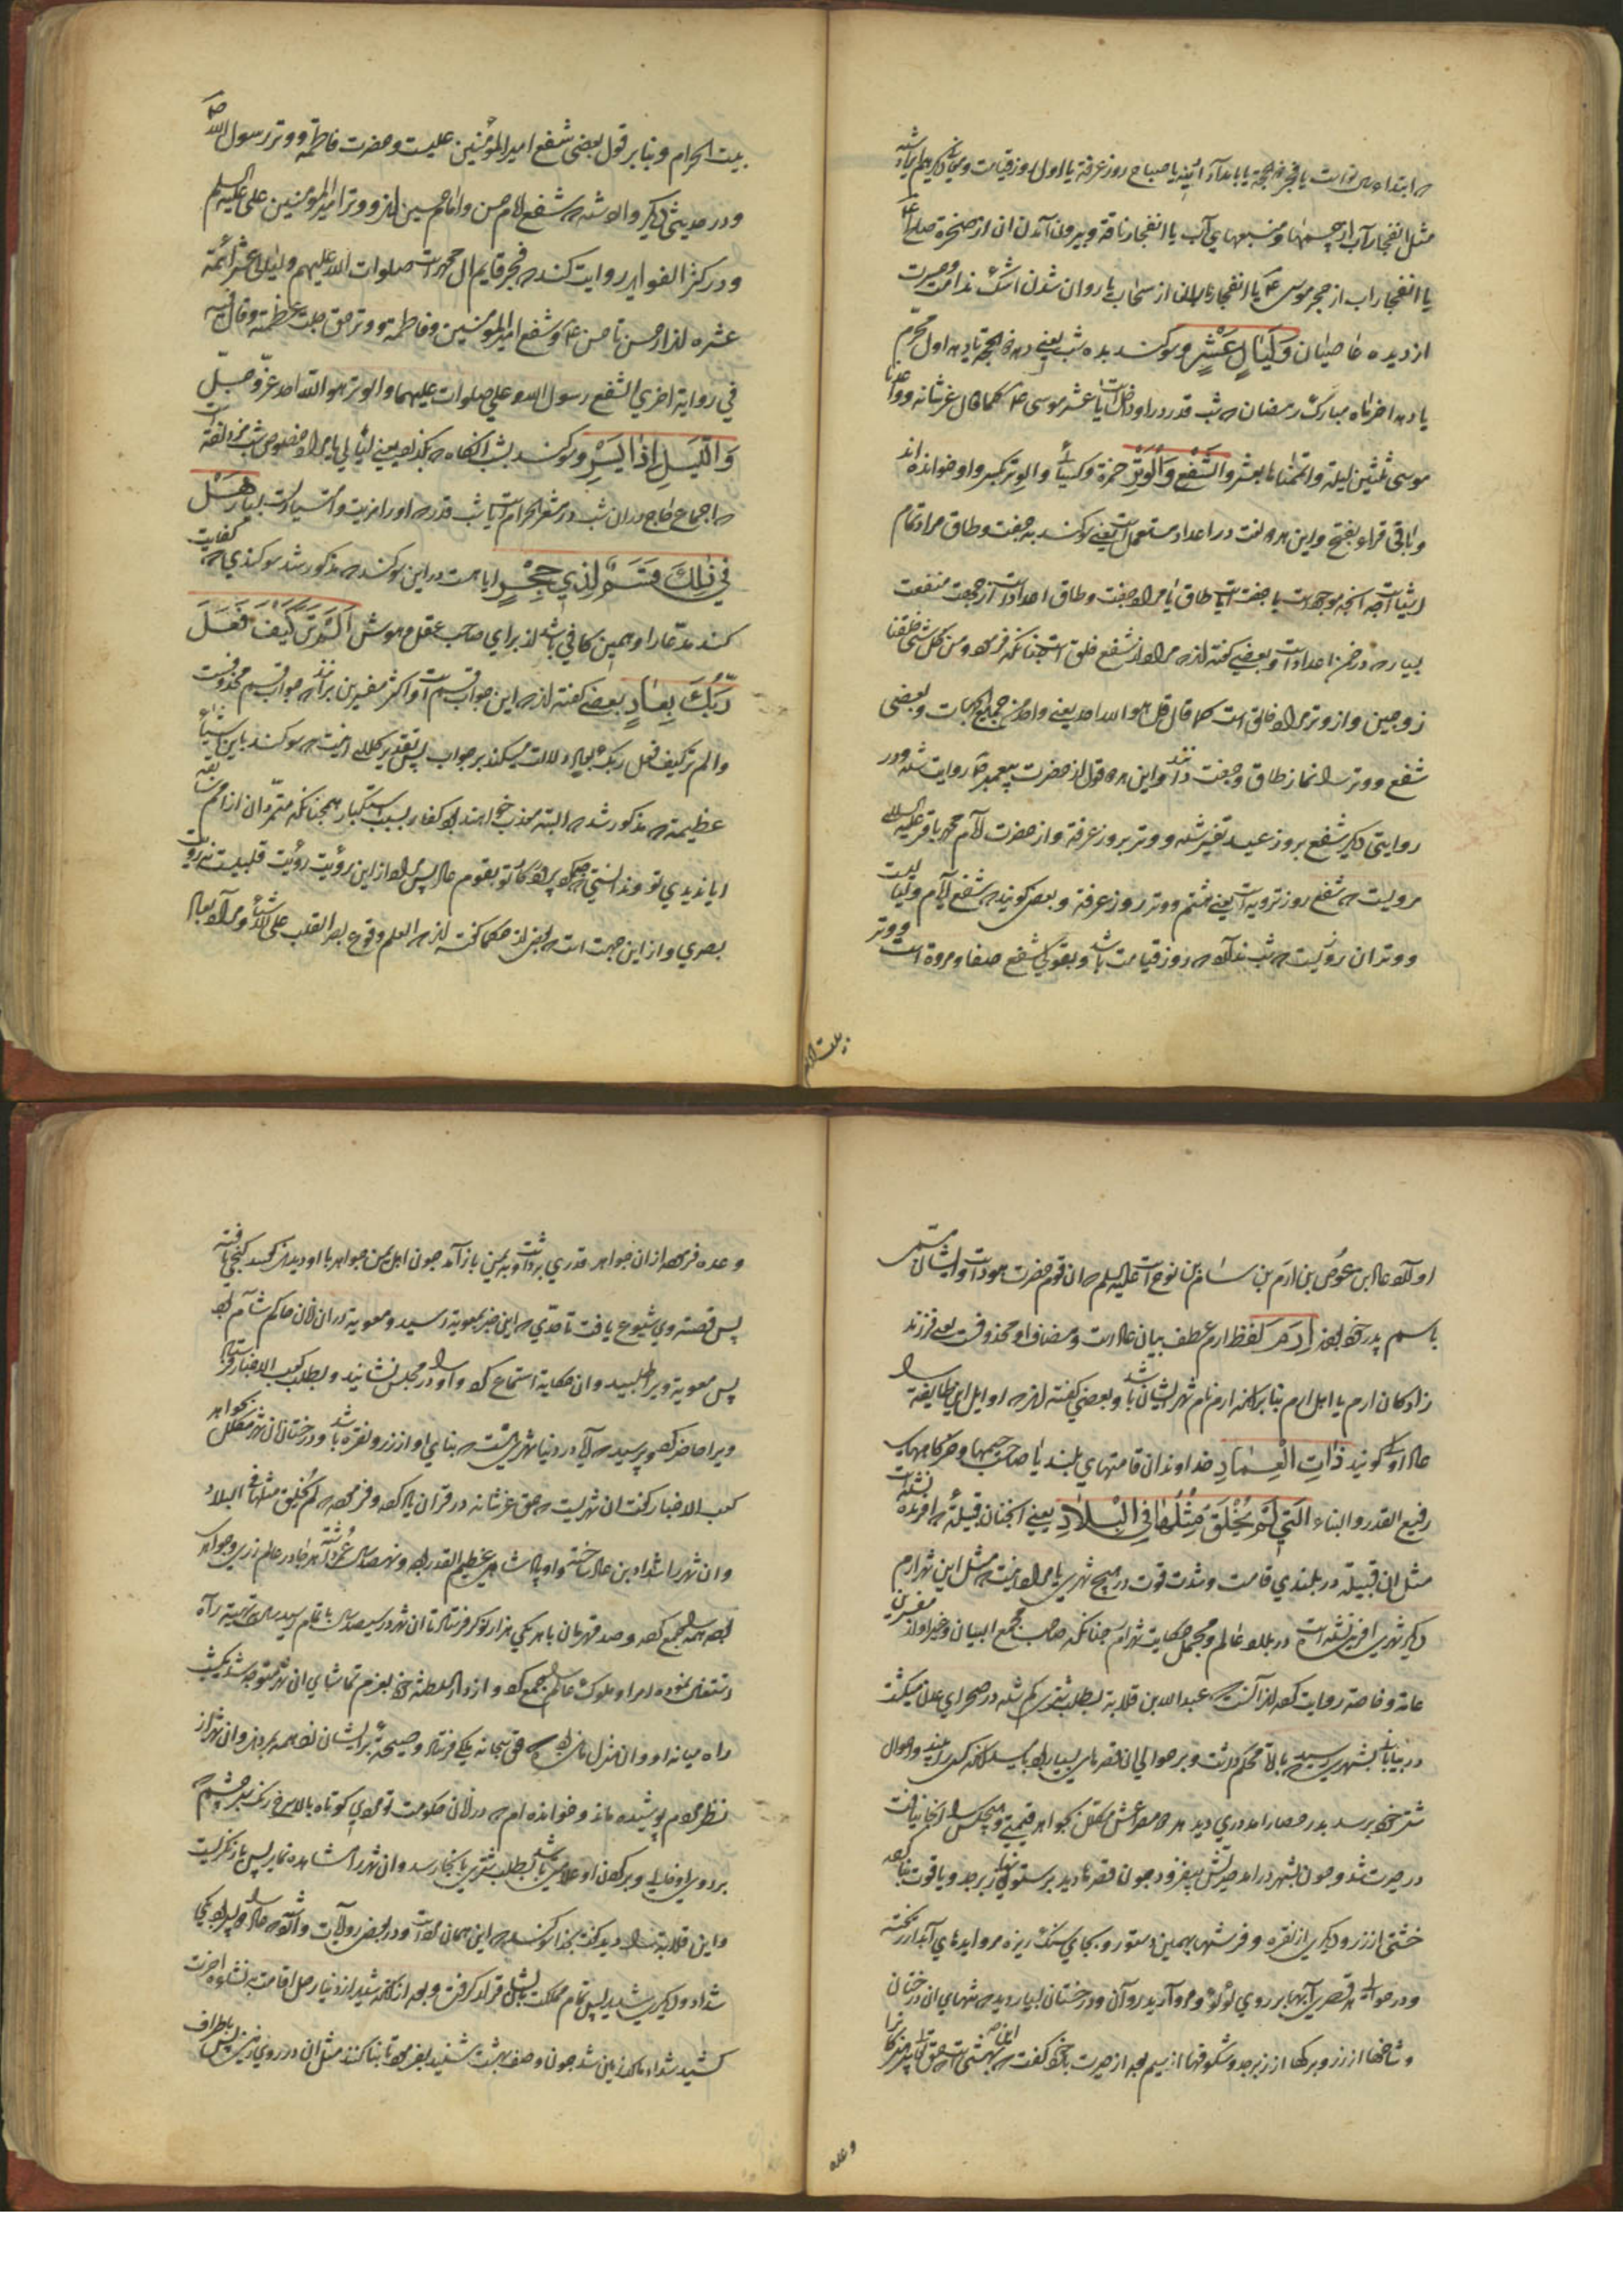 ابتداء سال است یا فجر ذیحجه یا بامداد آدینه یا صباح روز عرفه یا اول روز قیامت و
مثل انفجار آب از چشمها و منبعهای آب یا انفجار ناقه و بیرون آمدن ان از صخره صلح ع
یا انفجار اب از حجر موسی ع یا انفجار باران از سحاب یا روان شدن اشک ندامت و حسرت
از دیده عاصیان وَلَيَالٍ عَشْرٍ و سوکند بده شب یعنی دهه ذیحجه یا دهه اول محرّم
یا دهه اخر ماه مبارک رمضان که شب قدر در او داخلست یا عشر موسی ع کما قال عز شانه و واعدنا
موسی ثلثین لیلة و اتممناها بعشر وَالشَّفْعِ وَالْوَتْرِ حمزه و کسائی والوتر بکسر واو خوانده‌اند
و باقی قراء بفتح و این هر دو لغت در اعداد مستعمل است یعنی سوکند به جفت و طاق مراد تمام
اشیاست چه انچه موجودست یا جفت است یا طاق یا مراد جفت و طاق اعداد است از جهت منفعت
بسیار که در ضمن اعداد است و بعضی کفته‌اند مراد از شفع خلق است چنانکه فرموده و من کل شئ خلقنا
زوجین و از وتر مراد خالق است کما قال قل هو الله احد یعنی واحد من جمیع الجهات و بعضی
شفع و وتر را نماز طاق و جفت دانند و این هر دو قول از حضرت پیغمبر ص روایت شده و در
روایتی دیکر شفع بروز عید تفسیر شده و وتر بروز عرفه و از حضرت امام محمد باقر علیه السلام
مرویست که شفع روز ترویه است یعنی هشتم و وتر روز عرفه و بعضی کویند که شفع ایام و لیالیست
و وتر ان روزیست که شب ندارد که روز قیامت باشد و بقولی شفع صفا و مروه است و وتر
بیت الحرام و بنا بر قول بعضی شفع امیرالمؤمنین علیست و حضرت فاطمه و وتر رسول الله ص
و در حدیثی دیکر وارد شده که شفع امام حسن و امام حسین اند و وتر امیرالمؤمنین علی علیه السلم
و در کنز الفواید روایت کنند که فجر قایم ال محمد است صلوات الله علیهم و لیالی عشر ائمه
عشره اند از حسن تا حسن ع و شفع امیرالمؤمنین و فاطمه و وتر حق جلت عظمته و قال
في رواية اخري الشفع رسول الله و علي صلوات عليهما والوتر هو الله احد عزّ و جلّ
وَاللَّيْلِ إِذَا يَسْرِ و سوکند بشب انکاه که بکذرد یعنی لیالی یا مراد خصوص شب مزدلفه است
که اجماع حاج در ان شب در مشعر الحرام است یا شب قدر که او را مزیت و امتیاز است بسیار هَلْ
فِي ذَٰلِكَ قَسَمٌ لِذِي حِجْرٍ ایا هست در این سوکند که مذکور شد سوکندی که کفایت
کند مدعا را و همین کافی باشد از برای صاحب عقل و هوش أَلَمْ تَرَ كَيْفَ فَعَلَ
رَبُّكَ بِعَادٍ بعضی کفته‌اند که این جواب قسم است و اکثر مفسرین برانند که جواب قسم محذوفست
و الم تر کیف فعل ربک بعاد دلالت میکند بر جواب پس تقدیر کلام اینست که سوکند باین اشیاء
عظیمه که مذکور شد که البته معذب خواهند بود کفار بسبب استکبار همچنانکه متمردان از امم سابقه
ایا ندیدی تو و ندانستی که چکونه کرد پروردکار تو بقوم عاد پس مراد از این رؤیت رؤیت قلبیست نه رؤیت
بصری و از این جهت است که بعضی از حکما کفته اند که العلم وقوع بصر القلب علی الاشیاء و مراد بعاد
بیت الحرام
اولاد عاد ابن عوص بن ارم بن سام بن نوح است علیه السلم که ان قوم حضرت هود است و ایشان مسمی
باسم پدر خود بودند إِرَمَ لفظ ارم عطف بیان عاد است و مضاف او محذوفست یعنی فرزند
زادکان ارم یا اهل ارم بنا بر انکه ارم نام شهر ایشان باشد و بعضی کفته اند که اوایل این طایفه را
عاد اولی کویند ذَاتِ الْعِمَادِ خداوندان قامتهای بلند یا صاحب خیمها و خرکاهها
رفیع القدر و البناء الَّتِي لَمْ يُخْلَقْ مِثْلُهَا فِي الْبِلَادِ یعنی انچنان قبیله که افریده نشده است
مثل ان قبیله در بلندی قامت و شدت قوت در هیچ شهری یا مراد اینست که مثل این شهر ارم
دیکر شهری افریده نشده است در بلاد عالم و مجمل حکایت شهر ارم چنانکه صاحب مجمع البیان و غیر او از مفسرین
عامه و خاصه روایت کرده اند آنست که عبدالله بن قلابه بطلب شتری کم شده در صحرای عدن میکشت
در بیابانی بشهری رسید که باره محکم داشت و بر حوالی ان قصرهای بسیار بود بامید انکه کسی را بیند و احوال
شتر خود پرسد بدر حصار امد دری دید هر دو مصراعش مکلل بجواهر قیمتی و هیچکس را انجا نیافت
در حیرت شد و چون بشهر درامد حیرتش بیفزود چون قصرها دید بر ستونهای زبرجد و یاقوت بنا کرده
خشتی از زر و دیکری از نقره و فرشها بهمین دستور و بجای سنک ریزه مروایدهای آبدار ریخته
و در حوالی هر قصری آبها بر روی لؤلؤ و مروارید روان و درختان بسیار دید که تنهای ان درختان
و شاخها از زر و برکها از زبرجد و شکوفها از سیم بود از حیرت با خود کفت که این بهشتی است که حق تعالی پرهیزکاران را
وعده
وعده فرموده از ان جواهر قدری برداشت و به یمن باز آمد چون اهل یمن جواهر با او دیدند کفتند کنجی یافته
پس قصه وی شیوع یافت تا حدی که این خبر بمعویه رسید و معویه در ان زمان حاکم شام بود
پس معویه ویرا طلبید و ان حکایة استماع کرد و او را در مجلس نشانید و بطلب کعب الاخبار فرستاد
ویرا حاضر کرد و پرسید که آیا در دنیا شهری هست که بنای او از زر و نقره باشد و درختان ان شهر مکلل بجواهر
کعب الاخبار کفت ان شهریست که حق عز شانه در قرآن یاد کرده و فرموده که لم یخلق مثلها فی البلاد
و ان شهر را شداد بن عاد ساخته و او پادشاه عظیم القدر بود و نهصد سال عمر داشت هر جا در عالم زری و جواهر
بود همه را جمع کرد و صد قهرمان با هر یکی هزار نوکر فرستاد تا ان شهر در سیصد سال باتمام رسید
نموده امرا و ملوک عالم را جمع کرد و از دارالسلطنه خود بعزم تماشای ان شهر متوجه شد یکشب
راه میانه او و ان منزل مانده بود که حق سبحانه ملکی فرستاد و صیحه بر ایشان زد همه بمردند و ان شهر از
نظر مردم پوشیده ماند و خوانده ام که در زمان حکومت تو مردی کوتاه بالا سرخ رنک
بر روی او خالی و بر کردن او علامتی باشد بطلب شتری بانجا رسد و ان شهر را مشاهده نماید پس باز نکریست
و این قلابه را دید کفت بخدا سوکند که این همان مرد است و در بعضی روایات واقع است که عاد را دو پسر بود یکی
شداد و دیکری شدید پس تمام مملکت بایشان قرار کرفت و بعد از انکه شدید از دنیا رحل اقامت به نشاءه اخرت
کشید شداد مالک زمین شد چون وصف بهشت شنید بفرمود تا بنا کنند مثل ان در روی زمین پس باطراف